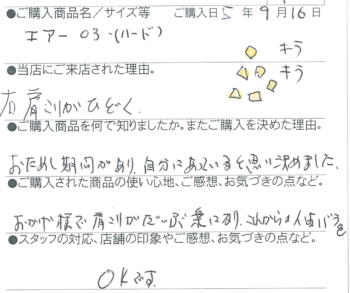 ●ご購入商品名／サイズ等 ご購入日 5 年 9 月 16 日
エアー 03・(ハード)
キラ
●当店にご来店された理由。 キラ
右肩こりがひどく.
●ご購入商品を何で知りましたか。またご購入を決めた理由。
おためし期間があり、自分にあっていると思い決めました、
●ご購入された商品の使い心地、ご感想、お気づきの点など。
おかげ様で肩こりがだいぶ楽になり、これからも
●スタッフの対応、店舗の印象やご感想、お気づきの点など。
OKです.